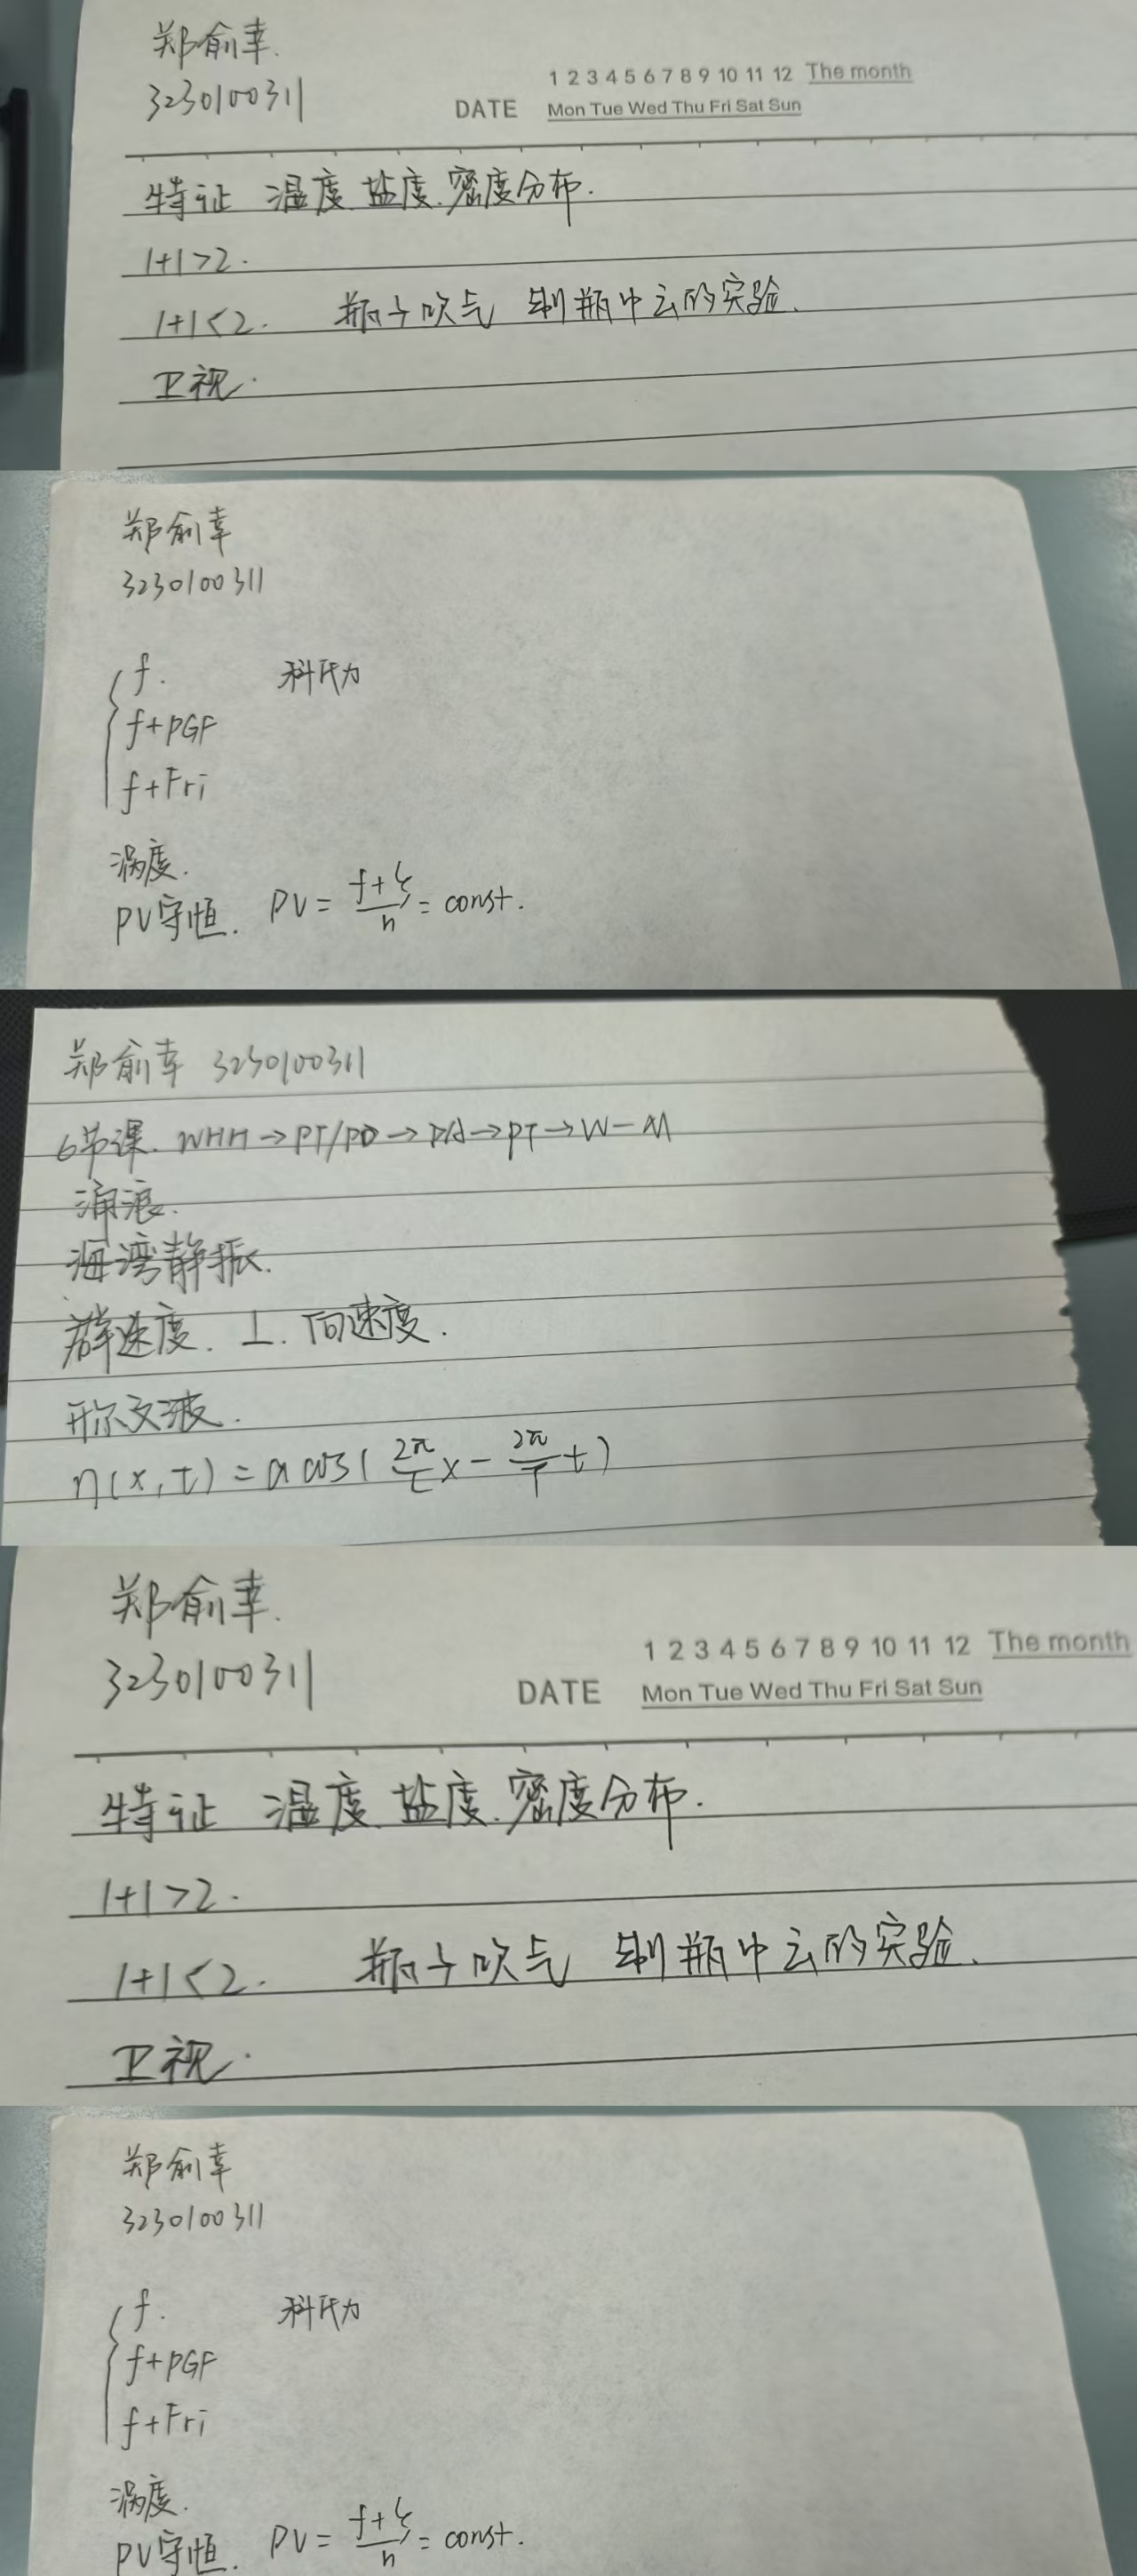 郑俞幸.
3230100311
1 2 3 4 5 6 7 8 9 10 11 12 The month
DATE Mon Tue Wed Thu Fri Sat Sun
特征 温度 盐度.密度分布.
1+1>2.
1+1<2. 瓶子吹气 制瓶中云的实验.
卫视.
郑俞幸
3230100311
f. 科氏力
f+PGF
f+Fri
涡度.
PV守恒. PV = (f+ζ)/h = const.
郑俞幸 3230100311
6节课. WHH→PT/PD→PA→PT→W-M
涌浪.
海湾静振.
群速度. ⊥. 向速度.
开尔文波.
η(x,t) = a cos( 2π/L x - 2π/T t)
郑俞幸.
3230100311
1 2 3 4 5 6 7 8 9 10 11 12 The month
DATE Mon Tue Wed Thu Fri Sat Sun
特征 温度 盐度.密度分布.
1+1>2.
1+1<2. 瓶子吹气 制瓶中云的实验.
卫视.
郑俞幸
3230100311
f. 科氏力
f+PGF
f+Fri
涡度.
PV守恒. PV = (f+ζ)/h = const.